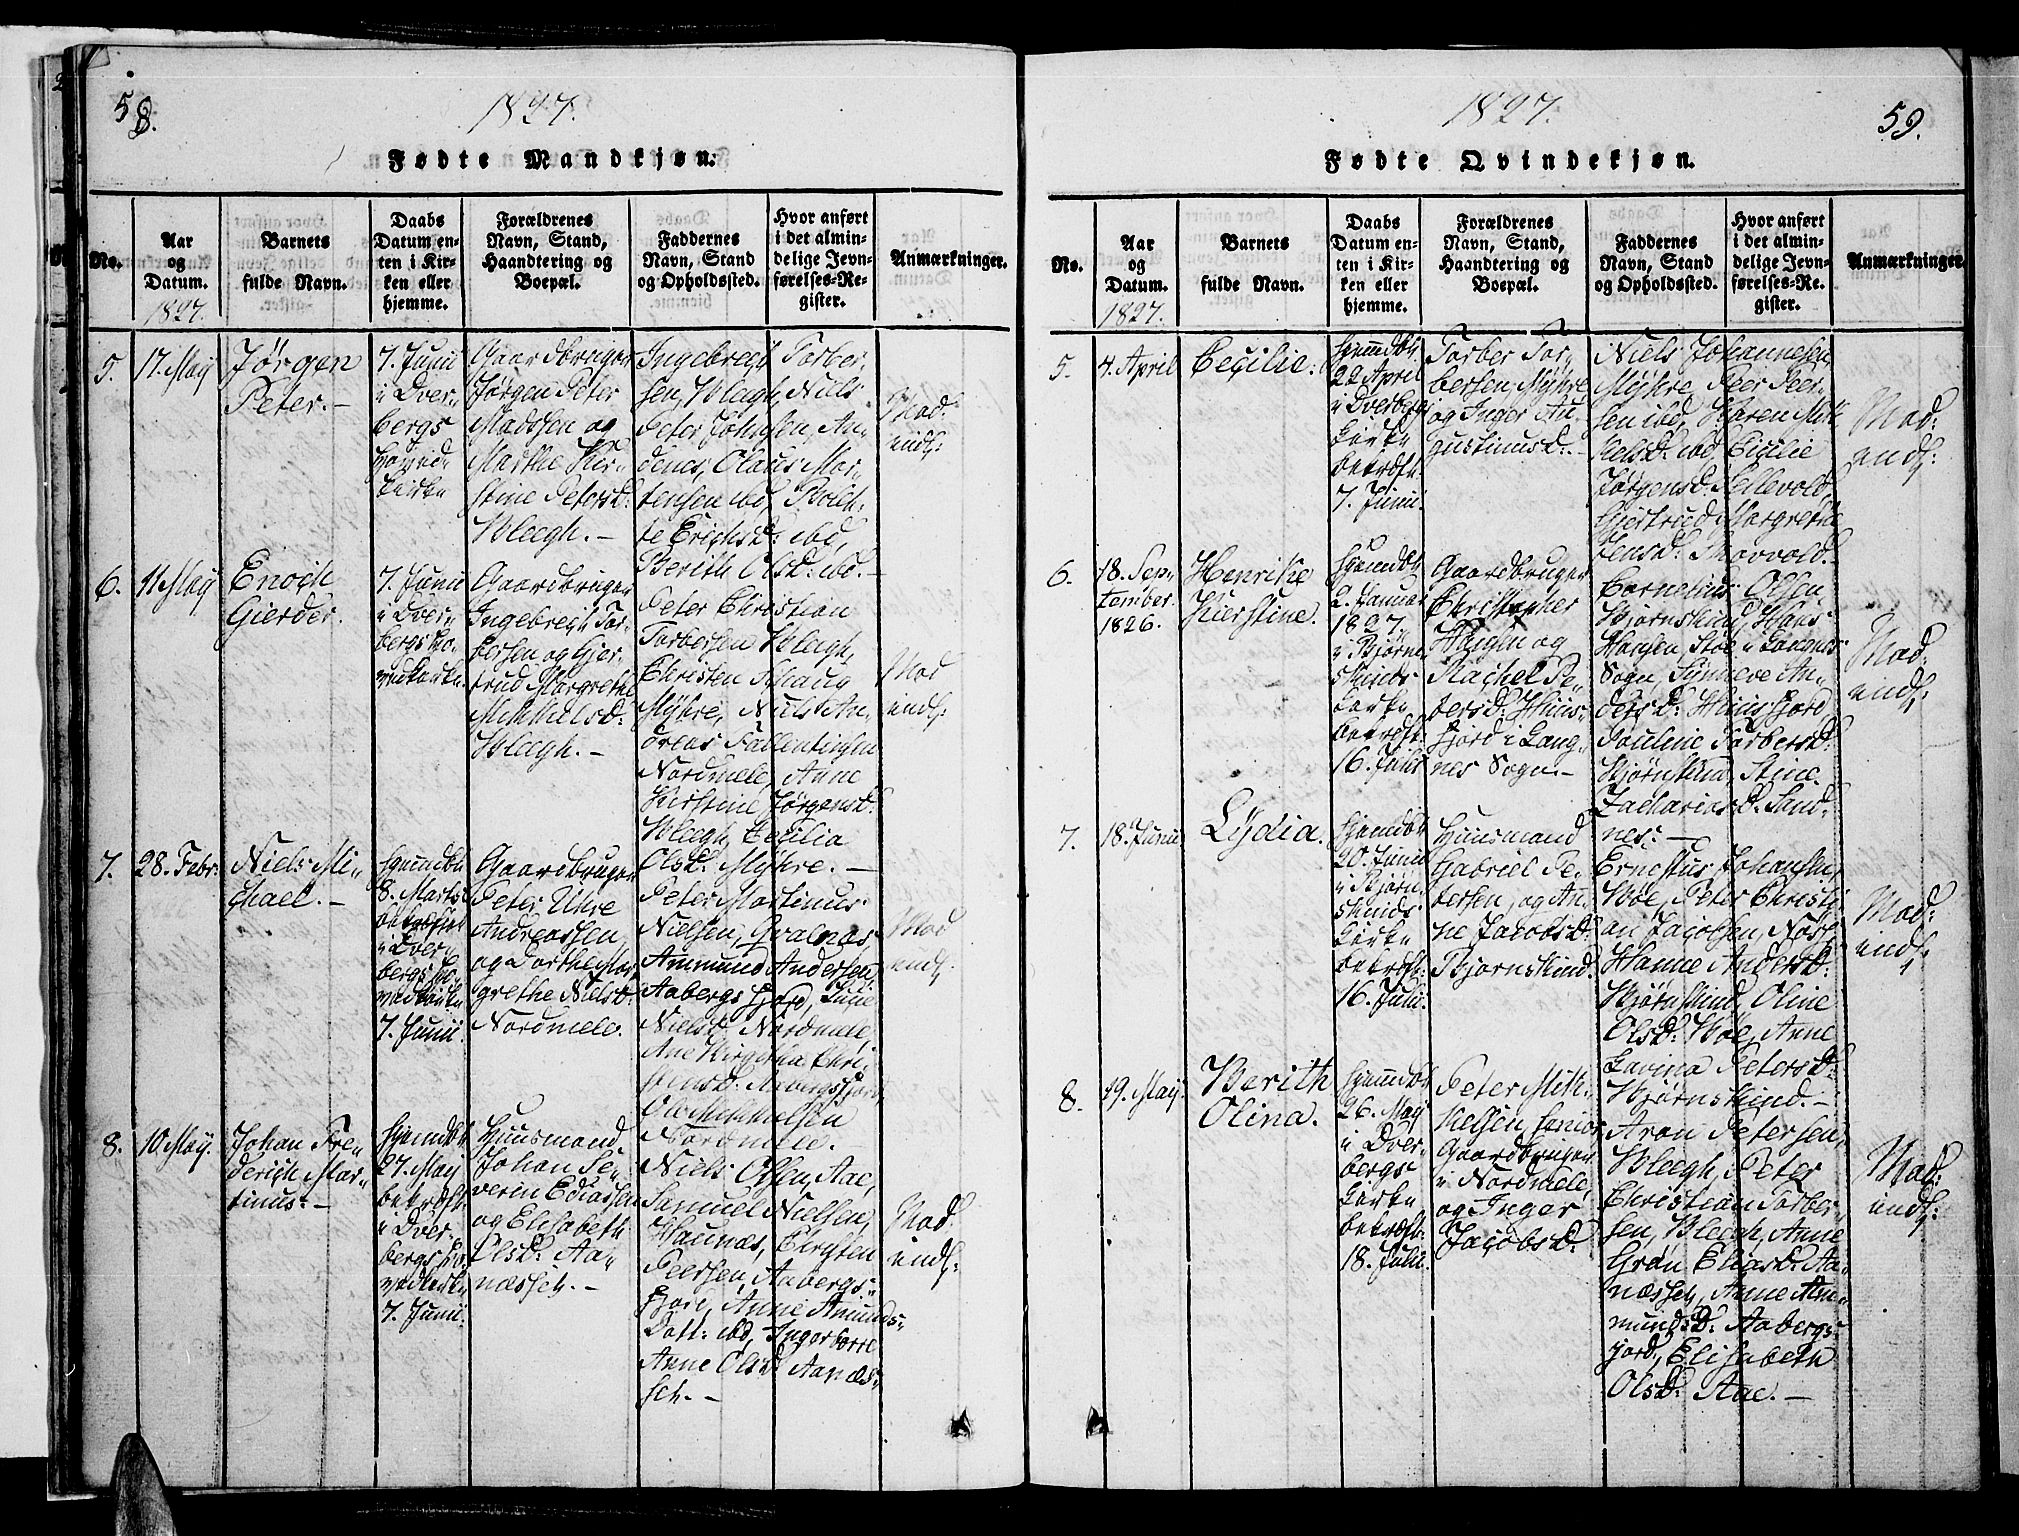 58.
1827.
Fødte Mandkjøn.
No.
Aar
og
Datum.
1827.
Barnets
fulde Navn.
Daabs
Datum en-
ten i Kir-
ken eller
hjemme.
Forældrenes
Navn, Stand,
Haandtering og
Boepæl.
Faddernes
Navn, Stand
og Opholdssted.
Hvor anført
i det almin-
delige Jevn-
førelses-Re-
gister.
Anmærkninger.
5.
17. May
Jørgen
Peter. -
7. Junii
i Dver-
bergs
Hoved
kirke
Gaardbruger
Jørgen Peter
Madssen og
Marthe Kir-
stine Petersd:
Bleegh. -
Ingebregt Torber-
sen, Bleegh, Niels
Peter Johnsen, An-
denes, Olaus Mor-
tensen ibd,
te Erichsd: ibd,
Berith Olsd: ibd. -
Mod:
indf:
6.
11 May
Enoch
Gierder.
7. Junii
i Dver-
bergs Ho-
vedkirke.
Gaardbruger
Ingebregt Tor-
bersen og Gjer-
trud Margrethe
Mikkelsd:
Bleegh. -
Peter Christian
Torbersen Bleegh,
Christen
Myhre, Niels An-
dreas Fallentinsen
Nordmele, Anne
Kirstine Jørgensd:
Bleegh, Cecilia
Olsd: Myhre. -
Mod
indf:
7.
28. Febr:
Niels Mi-
chael. -
Hjemdbt
8. Marts
i Dver-
bergs Ho-
vedkirke
7. Junii
Gaardbruger
Peter Uhre
Andreassen
og Dorthe Mar-
grethe Nielsd:
Nordmele.
Peter Martinus
Nielsen, Qvalnæs
Ammund Andersen
Aabergsfjord,
Nielsd: Nordmele,
Ane Birgitha Chri-
stensd: Aabergsfjord,
Ole Mikkelsen
Nordmele. -
Mod
indf:
8.
10 May.
Johan Fre-
derich Mar-
tinus: -
Hjemdbt
27. May
bekræft:
i Dver-
bergs Ho-
vedkirke
7. Junii.
Huusmand
Johan Se-
verin Ediassen
og Elisabeth
Olsd: Aa-
næsset. -
Niels Olsen, Aae,
Samuel Nielsen,
Haugnæs, Christen
Peersen, Aabergs-
fjord, Anne Amunds-
Datt: ibd, Ingerborre
Anne Olsd Aanæs-
set. -
Mod:
indf:
59.
1827.
Fødte Qvindekjøn.
No.
Aar
og
Datum.
1827.
Barnets
fulde Navn.
Daabs
Datum en-
ten i Kir-
ken eller
hjemme.
Forældrenes
Navn, Stand,
Haandtering og
Boepæl.
Faddernes
Navn, Stand
og Opholdssted.
Hvor anført
i det almin-
delige Jevn-
førelses-Re-
gister.
Anmærkninger.
5.
4. April
Cecilie.
Hjemdbt
22 April
i Dverbergs
Kirke
bekræft:
7. Junii.
Torber Tor-
bersen, Myhre,
og Inger Au-
gustinusd: -
Niels Johannesen
Myhre, Peer Peer-
sen ibd, Karen Mik
kelsd: ibd, Cicilie
Jørgensd: Sellevold,
Gjertrud Margrethe
tensd: Skovvold. -
Mod:
indf:
6.
18. Sep-
tember
1826.
Henrike
Kirstine.
Hjemdbt
2. Januar
1827
i Bjørn-
skinds
kirke
bekræft:
16. Julii
Gaardbruger
Christopher
Hansen og
Rachel Pe-
tersd: Huus-
fjord i Lang-
nes Sogn. -
Cornelius Olsen
Bjørnskind, Hans
Hansen, Stoe i Langnes
Sogn, Synneve An-
dersd: Huusfjord
Pauline Torbersd:
Bjørnskind, Stine
Zachariasd: Sand-
nes: -
Mod:
indf:
7.
18. Junii
Lydia.
Hjemdbt
20. Junii
i Bjørn-
skinds
kirke
bekræft:
16. Julii.
Huusmand
Gabriel Pe-
tersen, og An-
ne Jacobsd:
Bjørnskind.
Ernestus Johansen,
Böe, Peter Christi-
an Jacobsen, Nöss
Hanne Andersd:
Bjørnskind, Oline
Olsd: Böe, Anne
Lavina Petersd:
Bjørnskind. -
Mod:
indf:
8.
19. May.
Berith
Olina.
Hjemdbt
26. May
i Dver-
bergs
kirke
bekræft:
18. Julii.
Peter Mik-
kelsen Senior
Gaardbruger
i Nordmele,
og Inger
Jacobsd:
Aron Petersen,
Bleegh, Peter
Christian Torber-
sen, Bleegh, Anne
Grøn Eliasd: Aa-
næsset, Anne Am-
mundsd: Aabergs-
fjord, Elisabeth
Olsd: Aae. -
Mod:
indf: